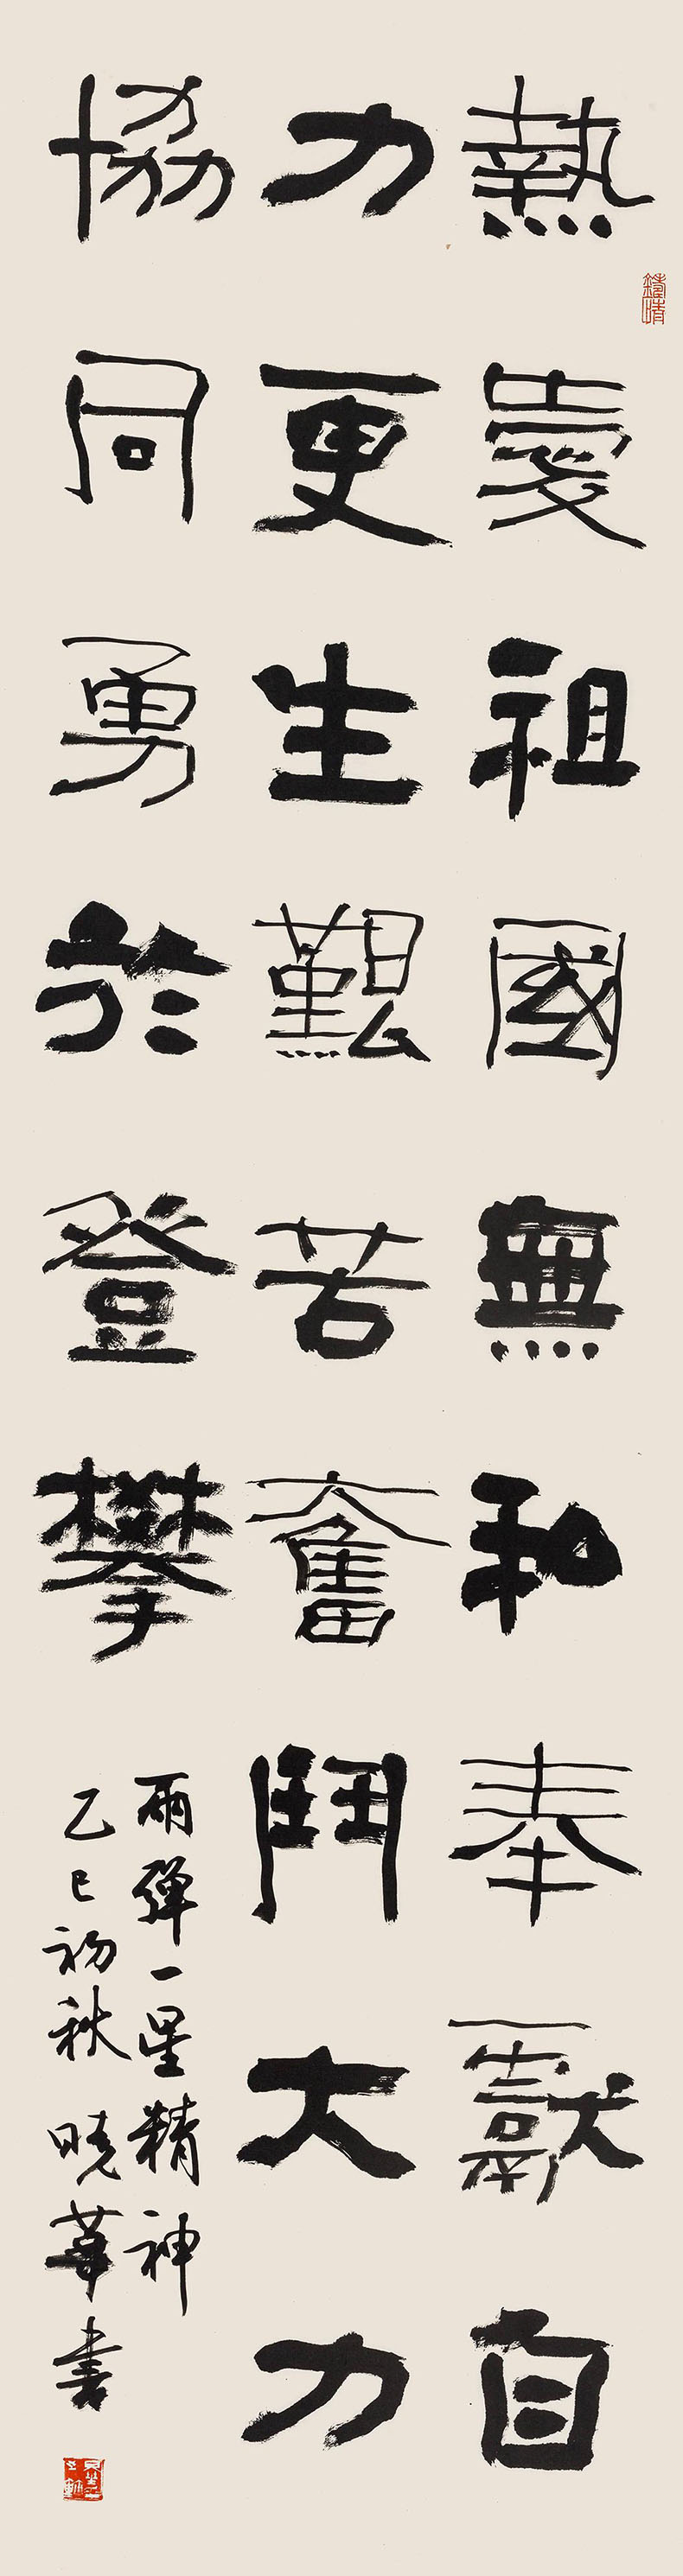 熱愛祖國無私奉獻自
力更生艱苦奮鬥大力
協同勇於登攀
兩彈一星精神
乙巳初秋 曉華書